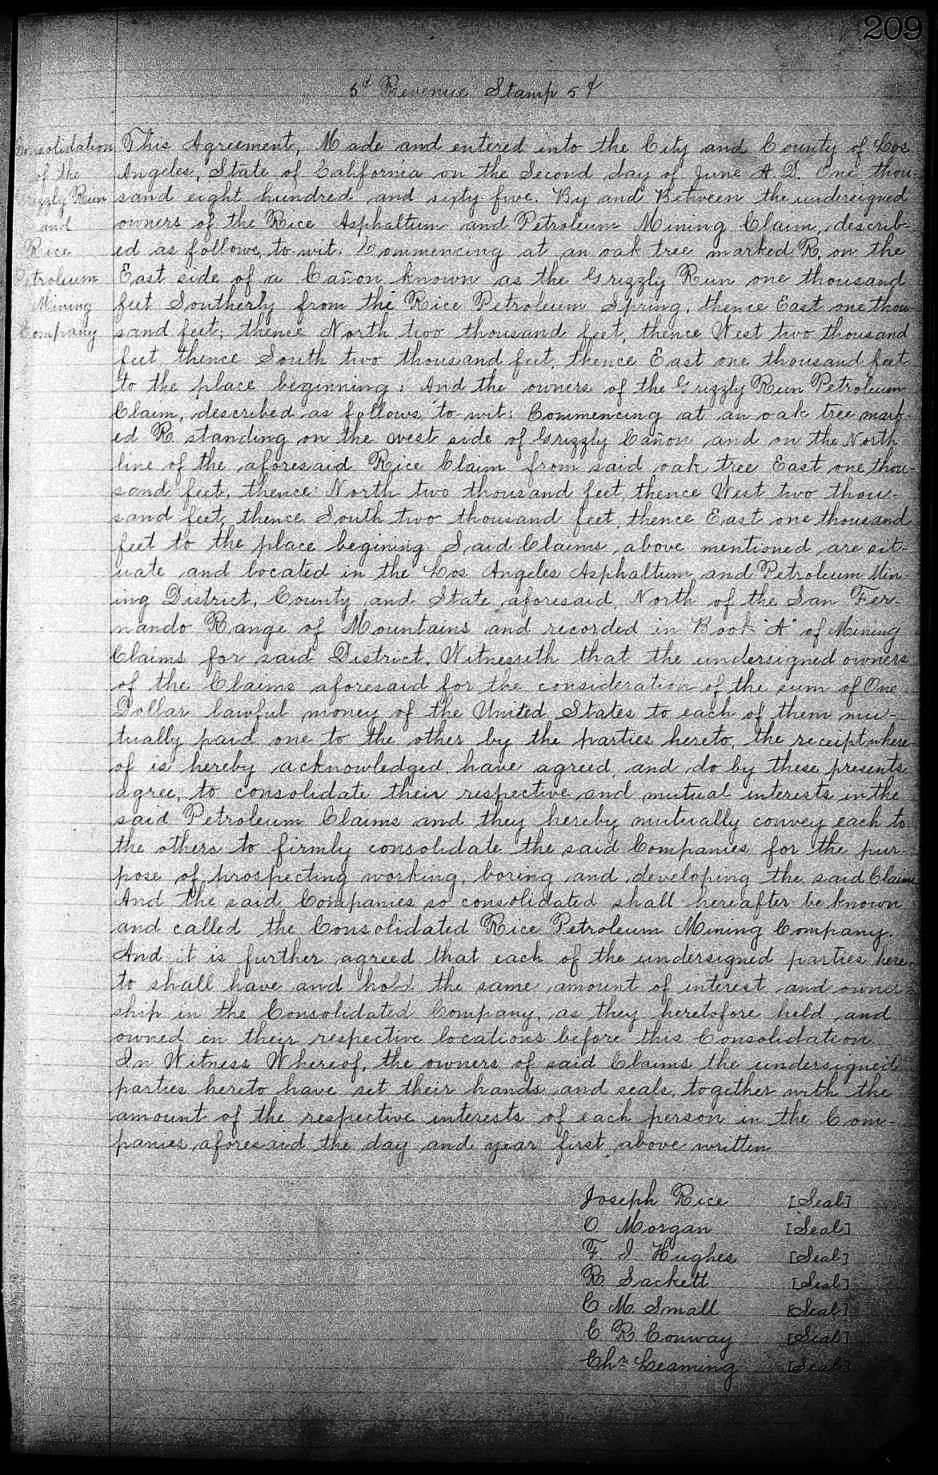 209
5¢ Revenue Stamp 5¢
Consolidation
of the
Grizzly Run
and
Rice
Petroleum
Mining
Company
This Agreement, Made and entered into the City and County of Los
Angeles, State of California on the Second day of June A.D. One thou-
sand eight hundred and sixty five. By and Between the undersigned
owners of the Rice Asphaltum and Petroleum Mining Claim, describ-
ed as follows, to wit. Commencing at an oak tree marked R, on the
East side of a Cañon known as the Grizzly Run one thousand
feet Southerly from the Rice Petroleum Spring, thence East one thou-
sand feet; thence North two thousand feet, thence West two thousand
feet thence South two thousand feet, thence East one thousand feet
to the place beginning; And the owners of the Grizzly Run Petroleum
Claim, described as follows to wit: Commencing at an oak tree mark-
ed R standing on the west side of Grizzly Cañon and on the North
line of the aforesaid Rice Claim from said oak tree East one thou-
sand feet, thence North two thousand feet, thence West two thou-
sand feet, thence South two thousand feet, thence East one thousand
feet to the place begining Said Claims above mentioned are sit-
uate and located in the Los Angeles Asphaltum and Petroleum Min-
ing District, County and State aforesaid, North of the San Fer-
nando Range of Mountains and recorded in Book "A" of Mining
Claims for said District. Witnessith that the undersigned owners
of the Claims aforesaid for the consideration of the sum of One
Dollar lawful money of the United States to each of them mu-
tually paid one to the other by the parties hereto, the receipt where-
of is hereby acknowledged have agreed and do by these presents
agree, to consolidate their respective and mutual interests in the
said Petroleum Claims and they hereby mutually convey each to
the others to firmly consolidate the said Companies for the pur-
pose of prospecting working, boring and developing the said Claims
And the said Companies so consolidated shall hereafter be known
and called the Consolidated Rice Petroleum Mining Company.
And it is further agreed that each of the undersigned parties here-
to shall have and hold the same amount of interest and owner-
ship in the Consolidated Company, as they heretofore held and
owned in their respective locations before this Consolidation
In Witness Whereof, the owners of said Claims the undersigned
parties hereto have set their hands and seals, together with the
amount of the respective interests of each person in the Com-
panies aforesaid the day and year first above written
Joseph Rice [Seal]
O Morgan [Seal]
F I Hughes [Seal]
R Sackett [Seal]
C M Small [Seal]
C R Conway [Seal]
Chs Leaming [Seal]